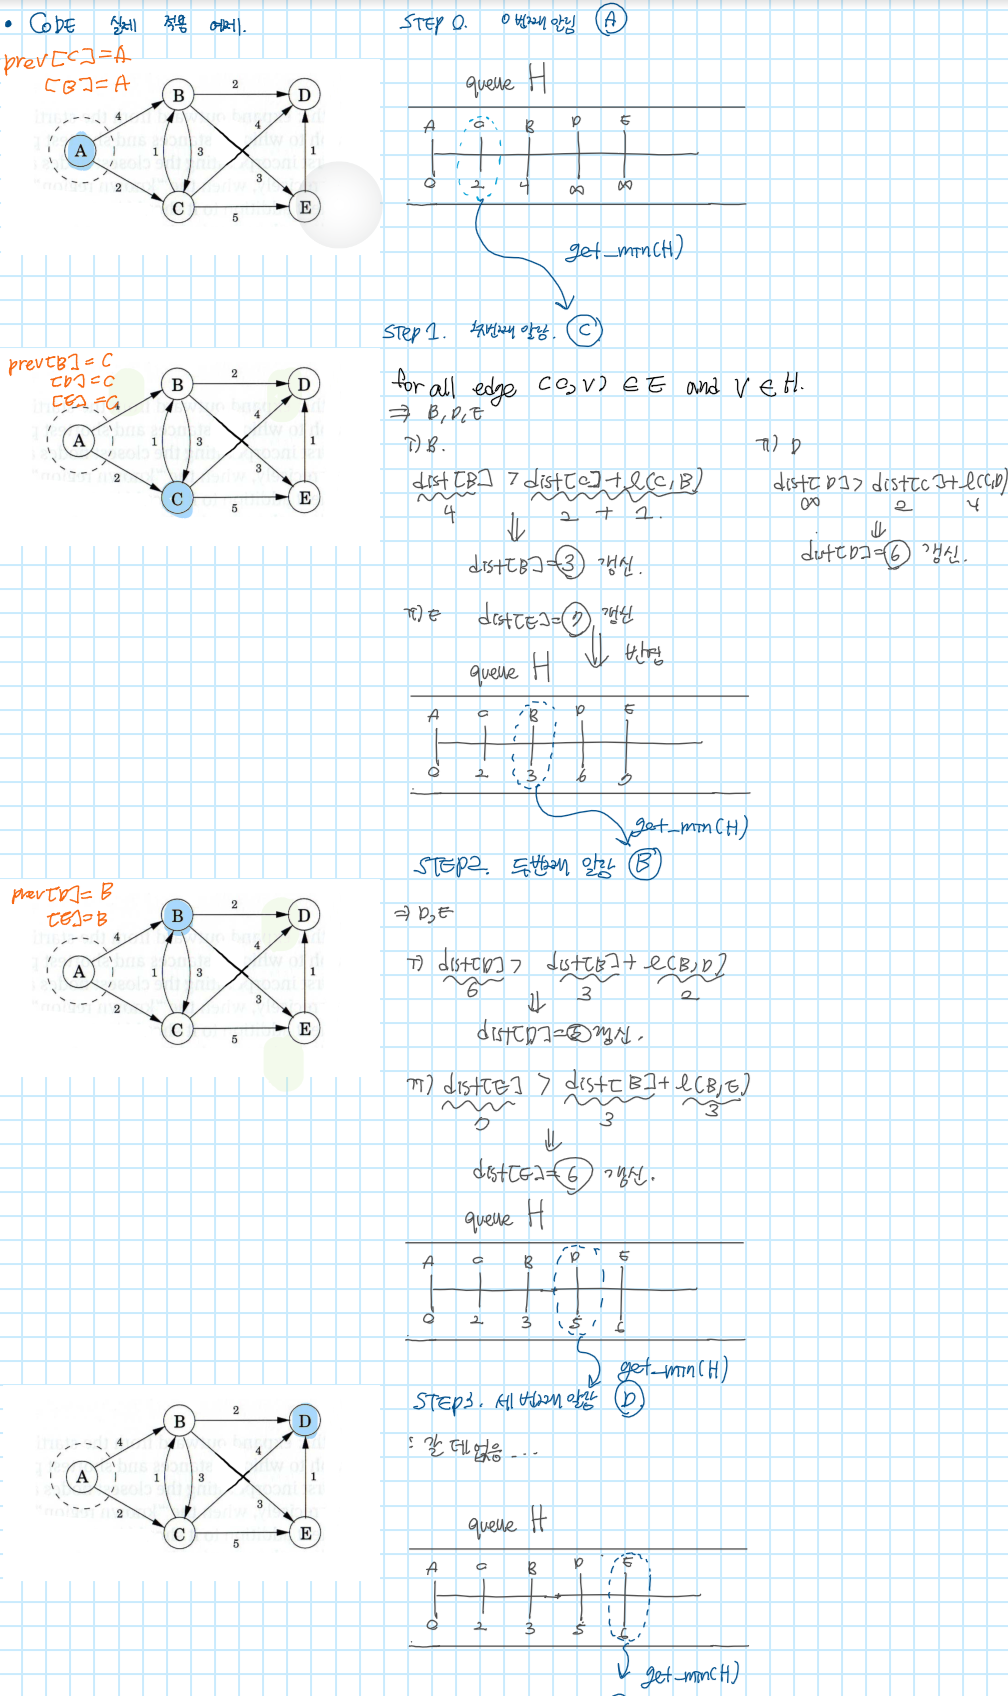 • CODE 실제 적용 예제.
prev[C]=A
[B]=A
A
B
C
D
E
4
2
1
3
2
4
3
5
1
STEP 0. 0번째 알람 A
queue H
A C B D E
0 2 4 ∞ ∞
get_min(H)
STEP 1. 첫번째 알람. C
prev[B]=C
[D]=C
[E]=C
A
B
C
D
E
4
2
1
3
2
4
3
5
1
for all edge (C,V) ∈ E and V ∈ H.
⇒ B, D, E
i) B.
dist[B] > dist[C]+l(C,B)
4 2 + 1.
⇓
dist[B]=3 갱신.
ii) D
dist[D] > dist[C]+l(C,D)
∞ 2 4
⇓
dist[D]=6 갱신.
iii) E dist[E]=7 갱신
⇓ 반영
queue H
A C B D E
0 2 3 6 7
get_min(H)
STEP2. 두번째 알람 B
prev[D]=B
[E]=B
A
B
C
D
E
4
2
1
3
2
4
3
5
1
⇒ D, E
i) dist[D] > dist[B]+l(B,D)
6 3 2
⇓
dist[D]=5 갱신.
ii) dist[E] > dist[B]+l(B,E)
7 3 3
⇓
dist[E]=6 갱신.
queue H
A C B D E
0 2 3 5 6
get_min(H)
STEP3. 세번째 알람 D
: 갈 데 없음 ...
A
B
C
D
E
4
2
1
3
2
4
3
5
1
queue H
A C B D E
0 2 3 5 6
get_min(H)